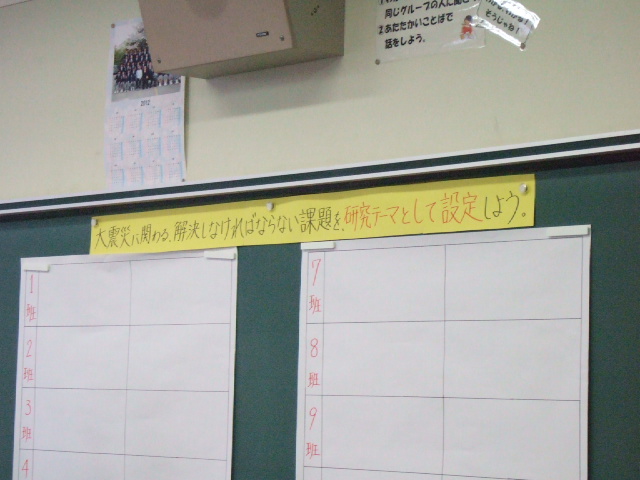 2012
同じグループの人に
②あたたかいことばで
話をしよう。
そうじゃね!
大震災に関わる、解決しなければならない課題を、研究テーマとして設定しよう。
1班
2班
3班
4
7班
8班
9班